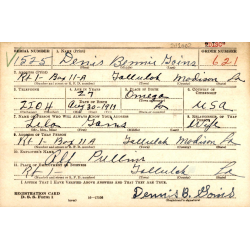 SERIAL NUMBER 1. NAME (Print) ORDER NUMBER
V1525 Denis Bonnie Goins 621
2. ADDRESS (Print)
Rt 1- Box 11-A Tallulah Madison La
3. TELEPHONE 4. AGE IN YEARS 5. PLACE OF BIRTH 6. COUNTRY OF CITIZENSHIP
27 Omega
DATE OF BIRTH
2504 30-1913 La USA
7. NAME OF PERSON WHO WILL ALWAYS KNOW YOUR ADDRESS 8. RELATIONSHIP OF THAT PERSON
Goins Wife
9. ADDRESS OF THAT PERSON
Rt 1- Box 11-A Tallulah Madison La
10. EMPLOYER'S NAME
Pullin
11. PLACE OF EMPLOYMENT OR BUSINESS
Rt Tallulah La
I AFFIRM THAT I HAVE VERIFIED ABOVE ANSWERS AND THAT THEY ARE TRUE.
REGISTRATION CARD
D. S. S. Form 1 Dennis B. Goins